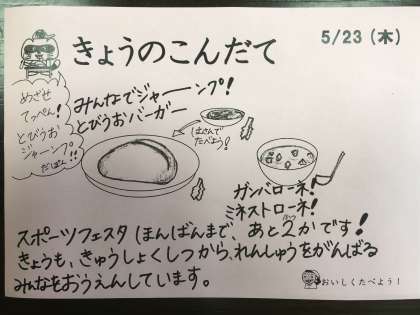 きょうのこんだて
5/23（木）
めざせ
てっぺん！
とびうお
ジャーンプ!!
だぽん！
みんなでジャーンプ！
とびうおバーガー
はさんで
たべよう！
ガンバローネ！
ミネストローネ！
スポーツフェスタほんばんまで、あと2かです！
きょうも、きゅうしょくしつから、れんしゅうをがんばる
みんなをおうえんしています。
おいしくたべよう！